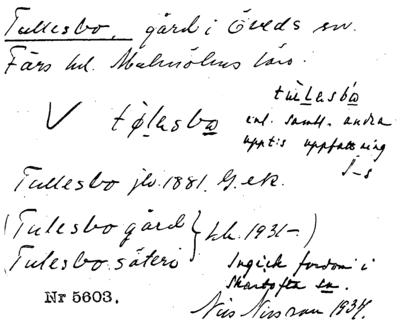 Tullesbo, gård i Öveds sn.
Färs hd. Malmöhus län.
tøl̲asbo̲
tùl̲asbo̲
enl. saml. andra
uppt:s uppfattning
Tullesbo jbv. 1881, G. ek.
(Tulesbo gård
Tulesbo säteri} kk. 1931–.)
Ingick fordom i
Skartofta sn.
Nr 5603.
Nils Nilsson 1937.